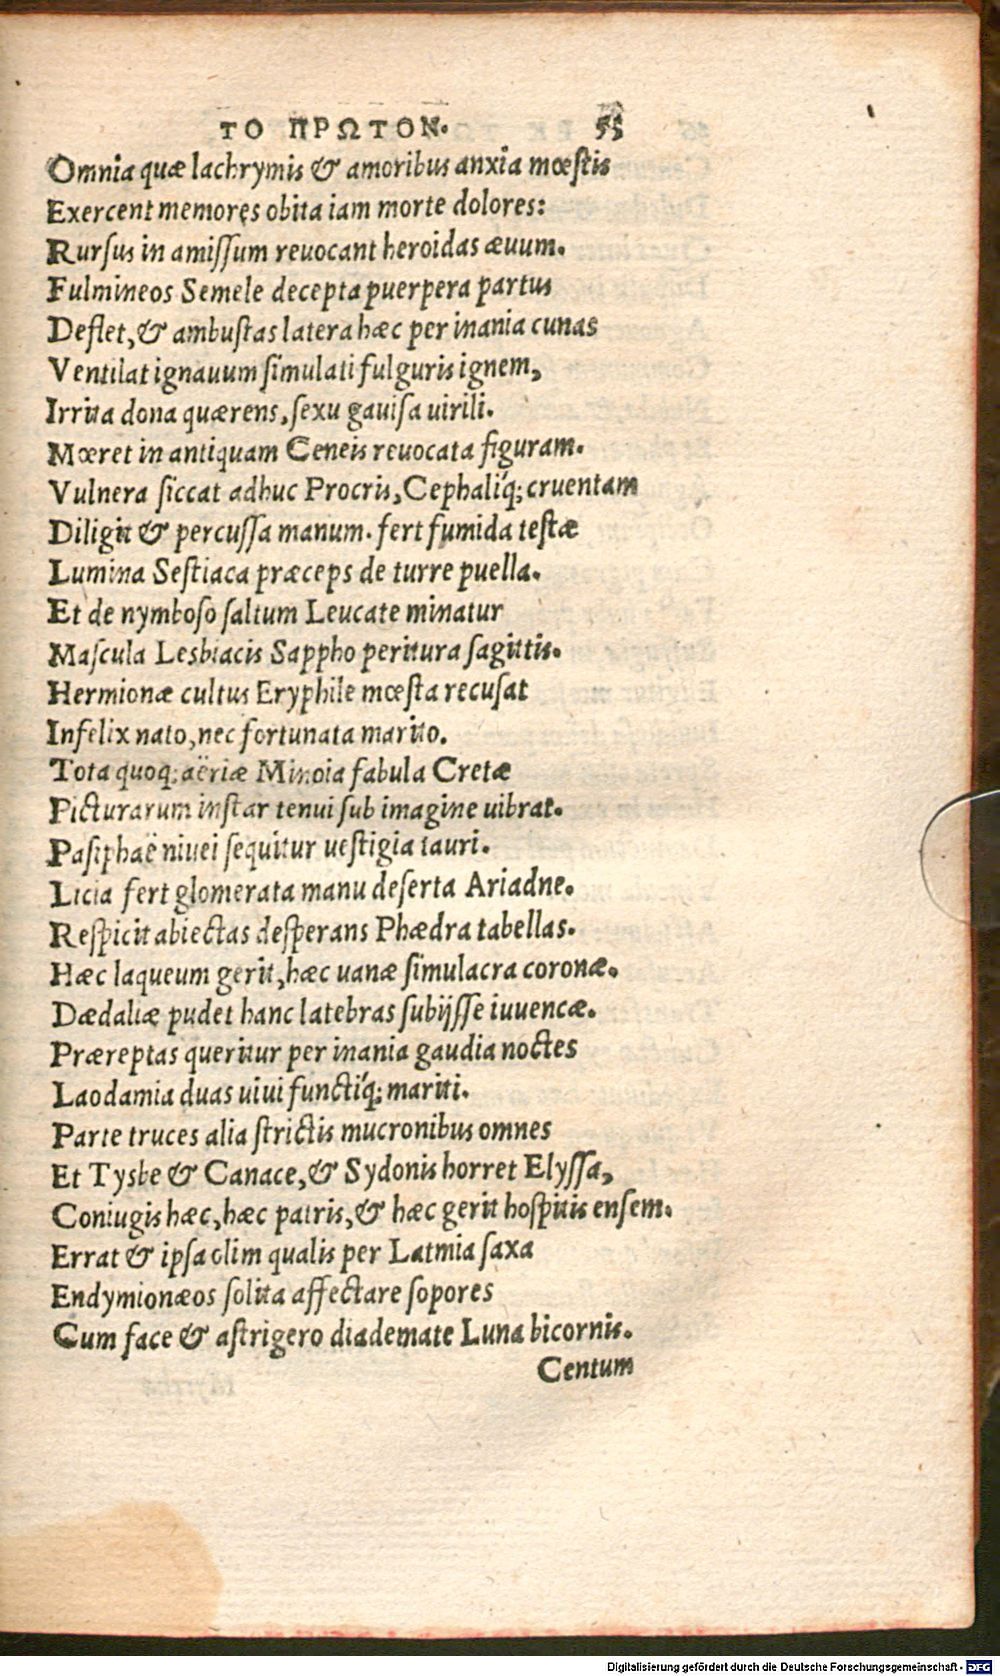 ΤΟ ΠΡΩΤΟΝ. 55
Omnia quæ lachrymis & amoribus anxia mœstis
Exercent memores obita iam morte dolores:
Rursus in amissum revocant heroidas ævum.
Fulmineos Semele decepta puerpera partus
Deflet, & ambustas latera hæc per inania cunas
Ventilat ignavum simulati fulguris ignem,
Irrita dona quærens, sexu gavisa virili.
Mœret in antiquam Ceneis revocata figuram.
Vulnera siccat adhuc Procris, Cephaliq́; cruentam
Diligit & percussa manum. fert fumida testæ
Lumina Sestiaca præceps de turre puella.
Et de nymboso saltum Leucate minatur
Mascula Lesbiacis Sappho peritura sagittis.
Hermionæ cultus Eryphile mœsta recusat
Infelix nato, nec fortunata marito.
Tota quoq; aëriæ Minoia fabula Cretæ
Picturarum instar tenui sub imagine vibrat.
Pasiphaë nivei sequitur vestigia tauri.
Licia fert glomerata manu deserta Ariadne.
Respicit abiectas desperans Phædra tabellas.
Hæc laqueum gerit, hæc vanæ simulacra coronæ.
Dædaliæ pudet hanc latebras subijsse iuvencæ.
Præreptas queritur per inania gaudia noctes
Laodamia duas vivi functiq́; mariti.
Parte truces alia strictis mucronibus omnes
Et Tysbe & Canace, & Sydonis horret Elyssa,
Coniugis hæc, hæc patris, & hæc gerit hospitis ensem.
Errat & ipsa olim qualis per Latmia saxa
Endymionæos solita affectare sopores
Cum face & astrigero diademate Luna bicornis.
Centum
Digitalisierung gefördert durch die Deutsche Forschungsgemeinschaft - DFG